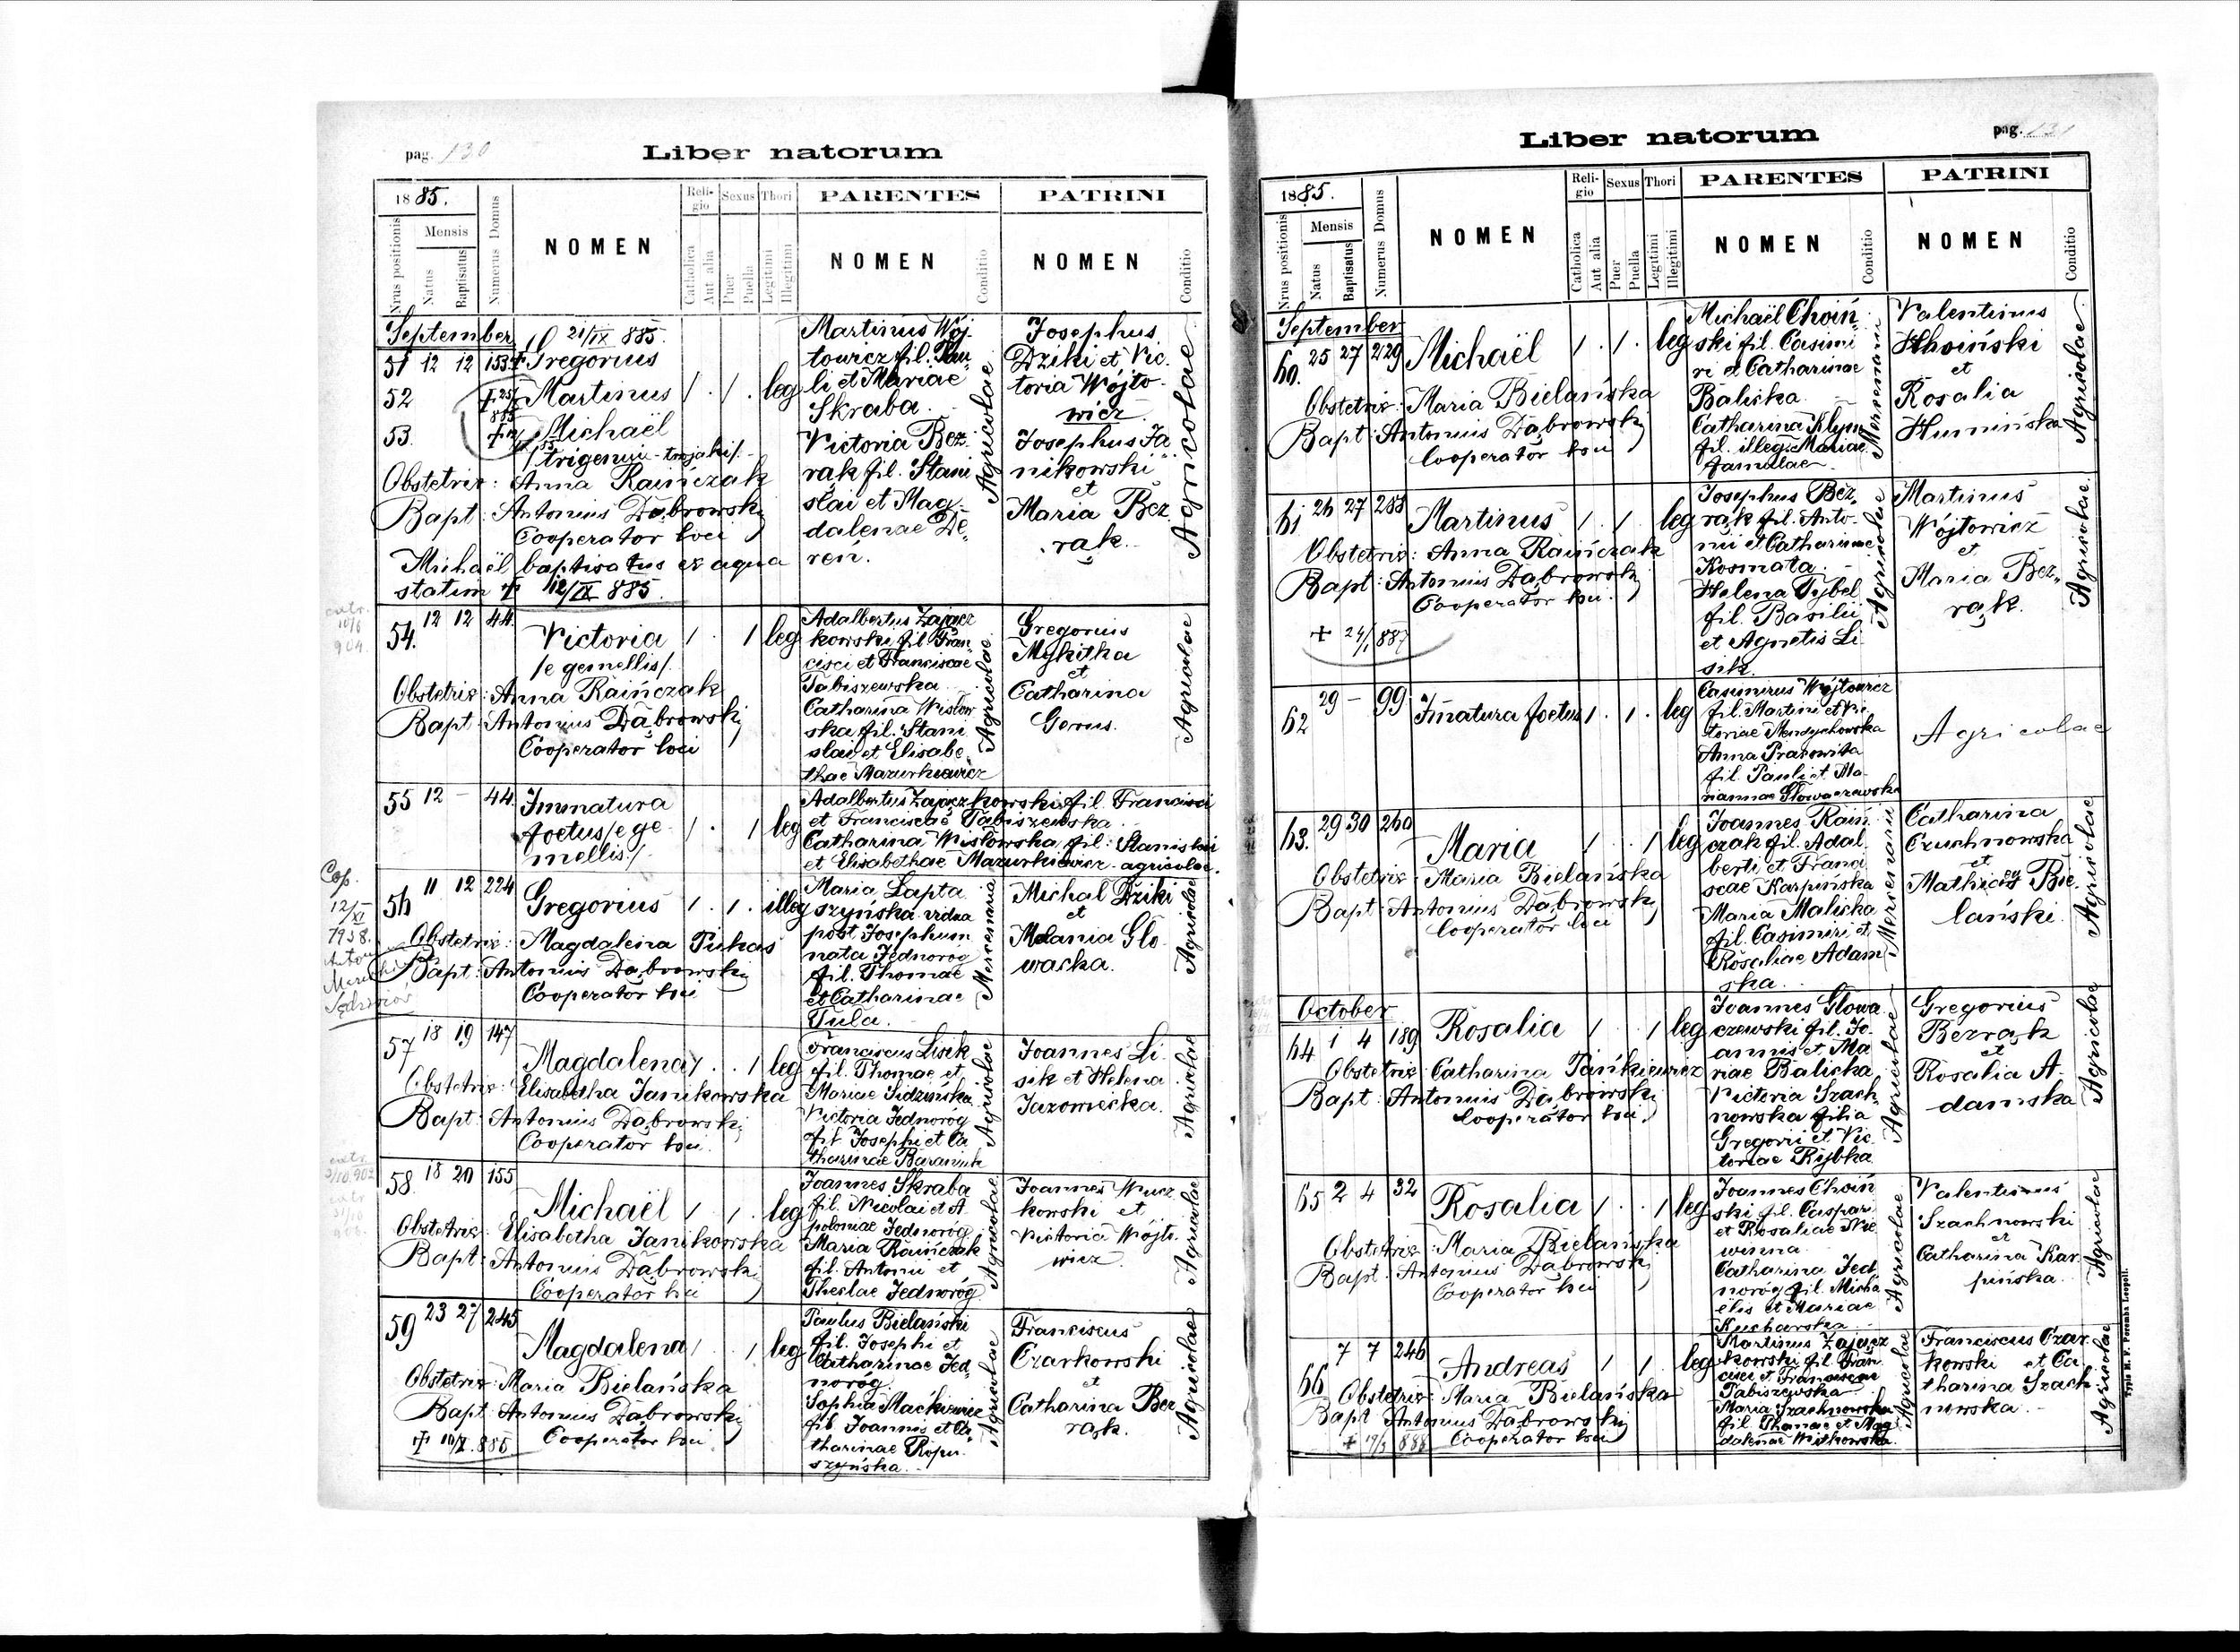 pag. 130
Liber natorum
1885.
Nrus positionis
Mensis
Natus
Baptisatus
Numerus Domus
NOMEN
Religio
Catholica
Aut alia
Sexus
Puer
Puella
Thori
Legitimi
Illegitimi
PARENTES
NOMEN
Conditio
PATRINI
NOMEN
Conditio
September
21/IX 885.
51 12 12 153
Gregorius
52
Martinus 1 . 1 . leg
53.
Michaël
/trigemini - trojaki/.
Obstetrix: Anna Raińczak
Bapt: Antonius Dąbrowski
Cooperator loci
Michaël baptisatus ex aqua
statim + 12/IX 885.
Martinus Wój-
towicz fil. Pau-
li et Mariae
Skraba.
Victoria Bez-
rak fil. Stani
slai et Mag-
dalenae De-
reń.
Agricolae
Josephus
Dziki et Vic-
toria Wójto-
wicz
Josephus Ja
nikowski
et
Maria Bez
rąk.
Agricolae
54. 12 12 44.
Victoria 1 . 1 leg
/e gemellis/.
Obstetrix: Anna Raińczak
Bapt: Antonius Dąbrowski
Cooperator loci
Adalbertus Zającz
kowski fil. Fran-
cisci et Franciscae
Tabiszewska
Catharina Wisłow
ska fil. Stani
slai et Elisabe
thae Mazurkiewicz
Agricolae
Gregorius
Mykitka
et
Catharina
Gerus.
Agricolae
55 12 - 44.
Immatura
foetus /e ge
mellis/. 1 . 1 leg
Adalbertus Zajączkowski fil. Francisci
et Franciscae Tabiszewska.
Catharina Wisłowska fil. Stanislai
et Elisabethae Mazurkiewicz agricolae.
Cop.
12/XI
1938.
56 11 12 224
Gregorius 1 . 1 . illeg
Obstetrix: Magdalena Pukas
Bapt: Antonius Dąbrowski
Cooperator loci
Maria Łapta
szyńska vidua
post Josephum
nata Jednoróg
fil. Thomae
et Catharinae
Tula.
Mercenaria
Michal Dziki
et
Melania Gło-
wacka.
Agricolae
57 18 19 147
Magdalena 1 . . 1 leg
Obstetrix: Elisabetha Janikowska
Bapt: Antonius Dąbrowski
Cooperator loci.
Franciscus Lisik
fil. Thomae et
Mariae Sidzińska.
Victoria Jednoróg
fil Josephi et Ca
tharinae Baraniuk
Agricolae
Joannes Li-
sik et Helena
Jazowiecka.
Agricolae
58. 18 20 155
Michaël 1 . 1 . leg
Obstetrix: Elisabetha Janikowska
Bapt: Antonius Dąbrowski
Cooperator loci
Joannes Skraba
fil. Nicolai et A
poloniae Jednoróg
Maria Raińczak
fil. Antonii et
Theclae Jednoróg
Agricolae
Joannes Wucz
kowski et
Victoria Wójto
wicz.
Agricolae
59 23 27 245
Magdalena 1 . . 1 leg
Obstetrix: Maria Bielańska
Bapt: Antonius Dąbrowski
Cooperator loci.
Paulus Bielański
fil. Josephi et
Catharinae Jed-
noróg.
Sophia Maćkiewicz
fil Joannis et Ca
tharinae Ripu
szyńska.
Agricolae
Franciscus
Czarkowski
et
Catharina Bez
rąk.
Agricolae
pag. 131
Liber natorum
1885.
Nrus positionis
Mensis
Natus
Baptisatus
Numerus Domus
NOMEN
Religio
Catholica
Aut alia
Sexus
Puer
Puella
Thori
Legitimi
Illegitimi
PARENTES
NOMEN
Conditio
PATRINI
NOMEN
Conditio
September
60. 25 27 229
Michaël 1 . 1 . leg
Obstetrix: Maria Bielańska
Bapt: Antonius Dąbrowski
Cooperator loci
Michaël Choiń-
ski fil. Casimi
ri et Catharinae
Balicka.
Catharina Klym
fil. illeg. Mariae
famulae
Mercenarii
Valentinus
Choiński
et
Rosalia
Humińska
Agricolae
61 26 27 288
Martinus 1 . 1 . leg
Obstetrix: Anna Raińczak
Bapt: Antonius Dąbrowski
Cooperator loci.
Josephus Bez-
rąk fil. Anto-
nii et Catharinae
Kosmata.
Helena Dybel
fil. Basilii
et Agnetis Li
sik.
Agricolae
Martinus
Wójtowicz
et
Maria Bez-
rąk.
Agricolae.
62 29 - 99
Imatura foetus 1 . 1 . leg
Casimirus Wójtowicz
fil. Martini et Vic
toriae Mendychowska
Anna Pracowita
fil. Pauli et Ma-
riannae Głowaczewska
Agricolae
63. 29 30 260
Maria 1 . . 1 leg
Obstetrix: Maria Bielańska
Bapt: Antonius Dąbrowski
Cooperator loci
Joannes Raiń
czak fil. Adal-
berti et Franci
scae Karpińska
Maria Malicka
fil. Casimiri et
Rosaliae Adam
ska.
Mercenarii
Catharina
Czuchnowska
et
Mathias Bie-
lański.
Agricolae
October
64 1 4 189
Rosalia 1 . . 1 leg
Obstetrix: Catharina Pańkiewicz
Bapt: Antonius Dąbrowski
Cooperator loci
Joannes Głowa
czewski fil. Jo-
annis et Ma
riae Balicka
Victoria Szach-
nowska filia
Gregorii et Vic
toriae Rybka.
Agricolae
Gregorius
Bezrąk
et
Rosalia A-
damska
Agricolae
65 2 4 32
Rosalia 1 . . 1 leg
Obstetrix: Maria Bielańska
Bapt: Antonius Dąbrowski
Cooperator loci
Joannes Choiń
ski fil. Caspari
et Rosaliae Nie
winna.
Catharina Jed
noróg fil. Micha
ëlis et Mariae
Kucharska.
Agricolae
Valentinus
Szachnowski
et
Catharina Kar
pińska.
Agricolae
66 7 7 246
Andreas 1 1 . leg
Obstetrix: Maria Bielańska
Bapt Antonius Dąbrowski
Cooperator loci
+ 19/3 888
Martinus Zającz
kowski fil. Fran
cisci et Franciscae
Tabiszewska
Maria Szachnowska
fil. Thomae et Mag
dalenae Witkowska.
Agricolae
Franciscus Czar
kowski et Ca
tharina Szach
nowska.
Agricolae
Typis M. F. Poremba Leopoli.